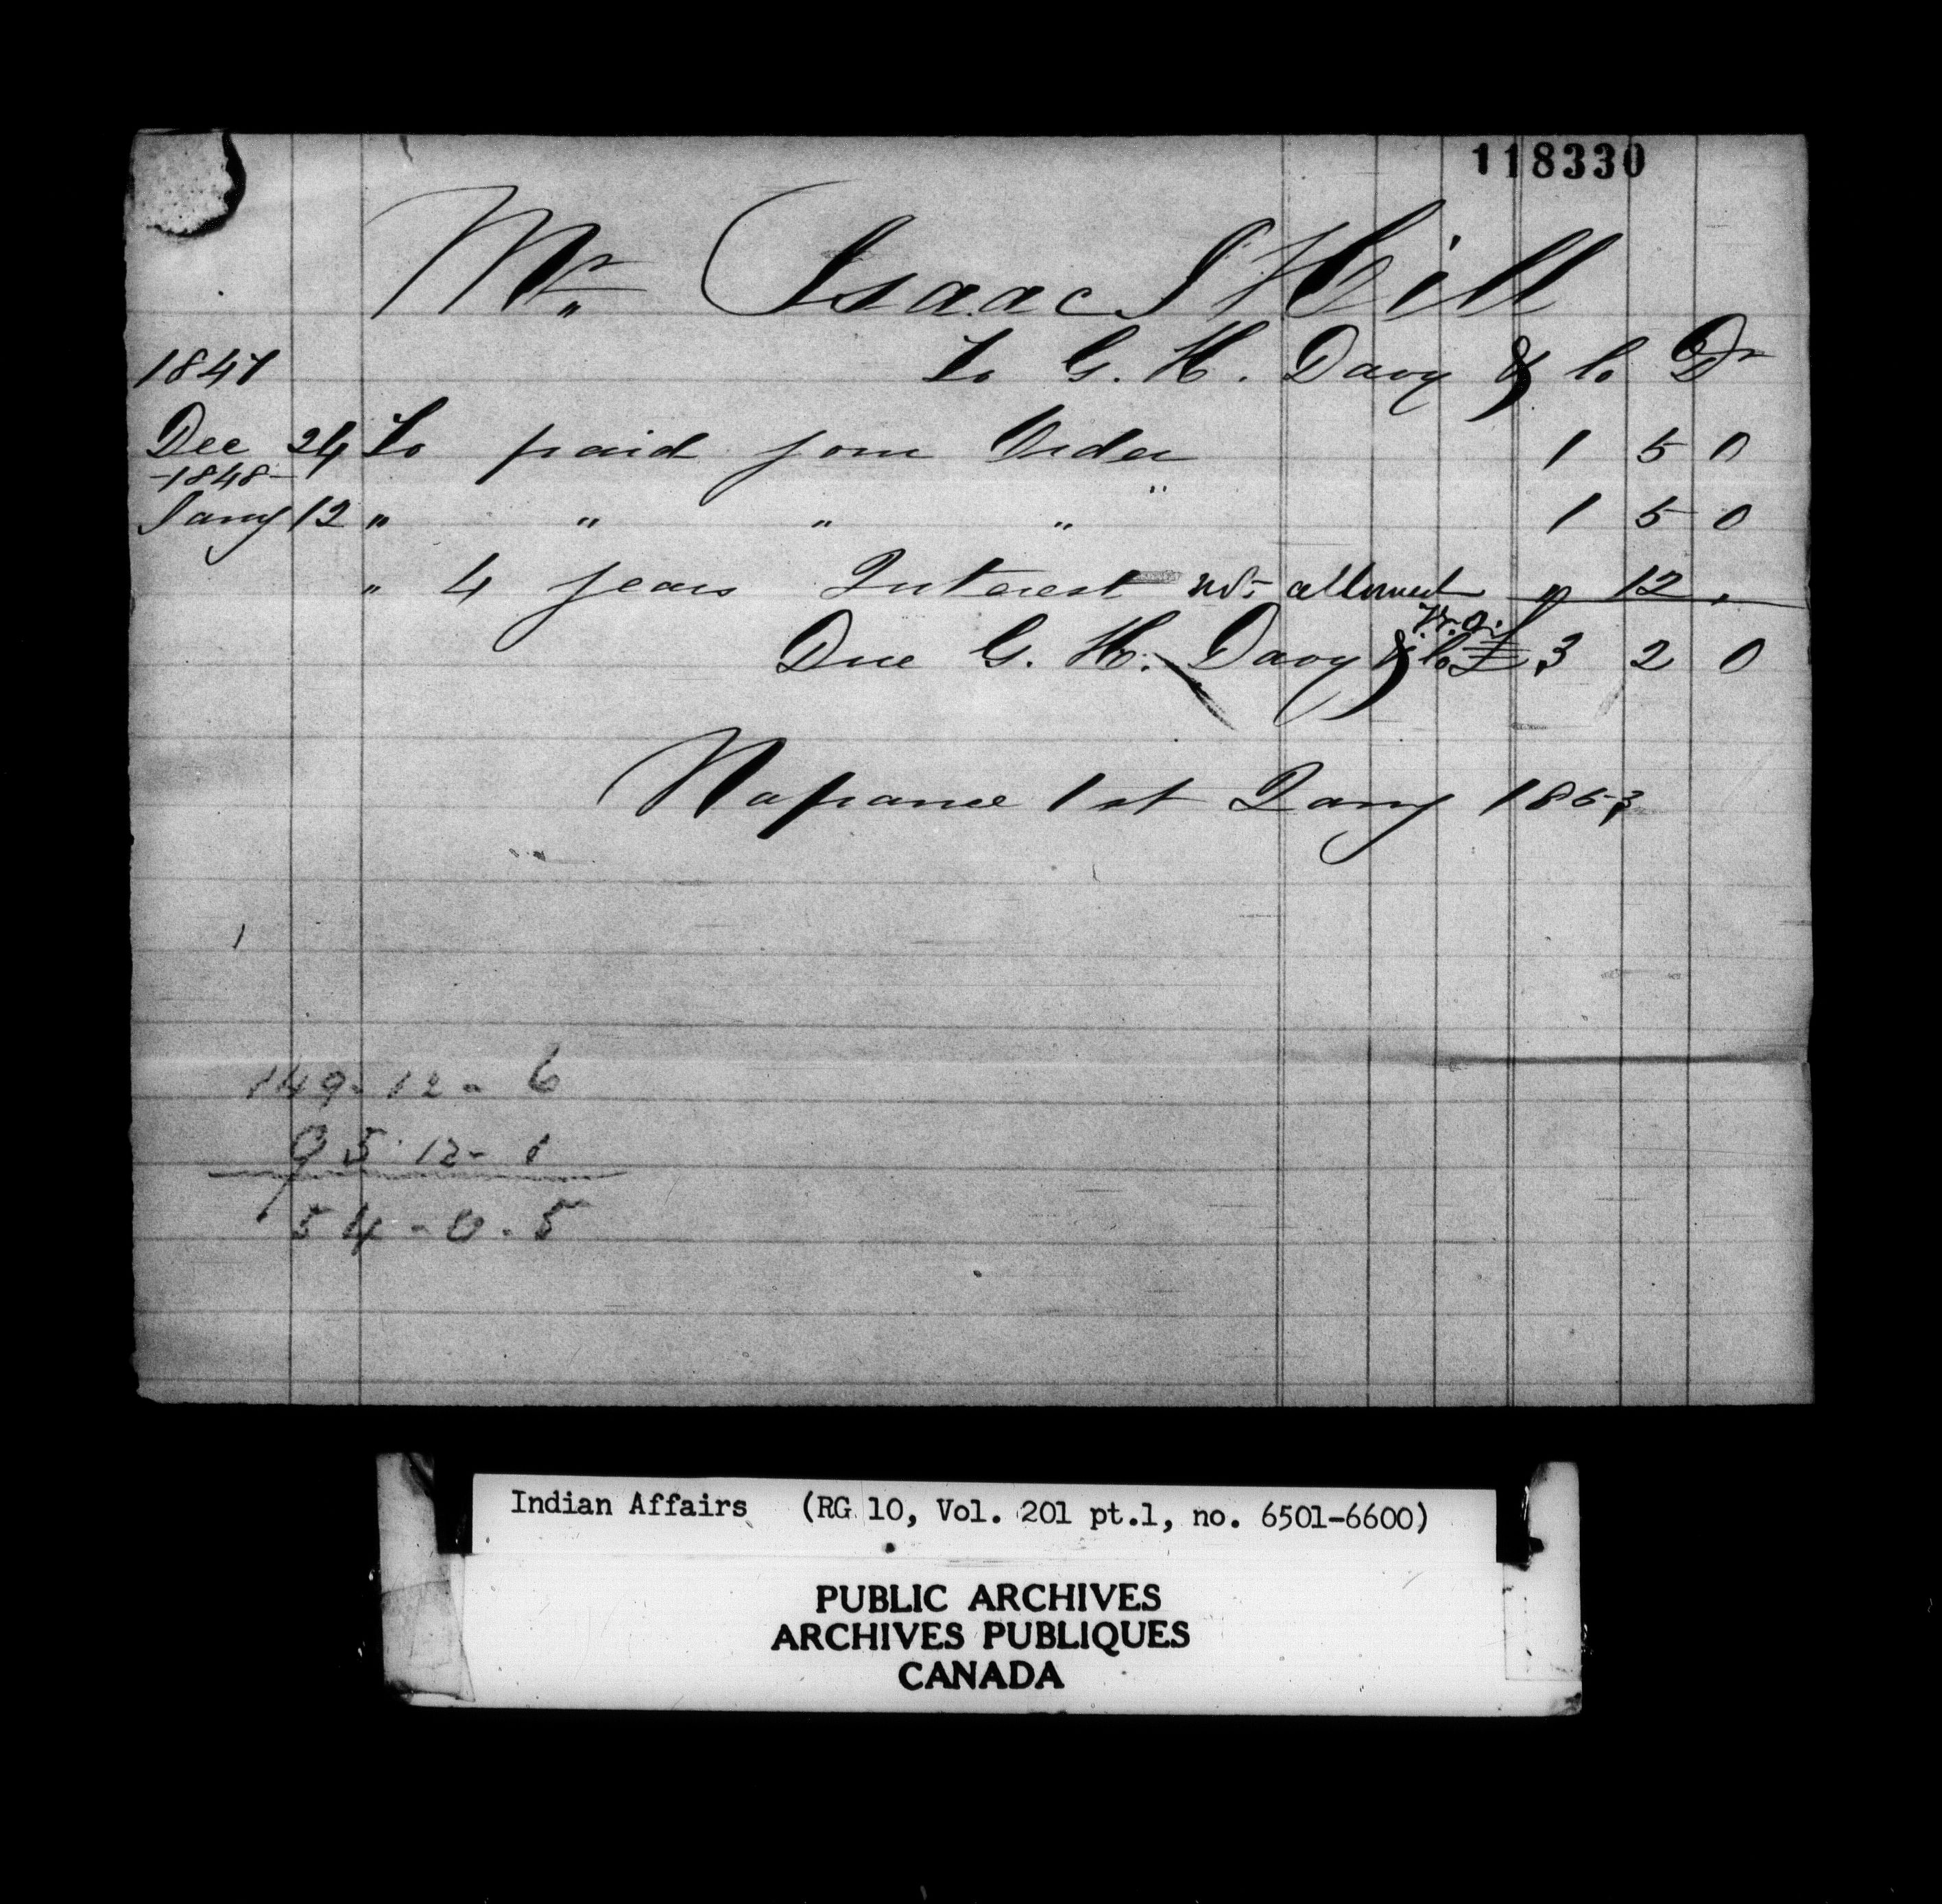 118330
Mr Isaac S Hill
1847 To G. H. Davy & Co Dr
Dec 24 To paid your Order 1 5 0
1848
Jany 12 " " " " 1 5 0
" 4 years Interest not allowed " 12 "
Due G. H. Davy & Co £ 3 2 0
Napanee 1st Jany 1853
149-12-6
95-12-1
54-0-5
Indian Affairs (RG 10, Vol. 201 pt.1, no. 6501-6600)
PUBLIC ARCHIVES
ARCHIVES PUBLIQUES
CANADA